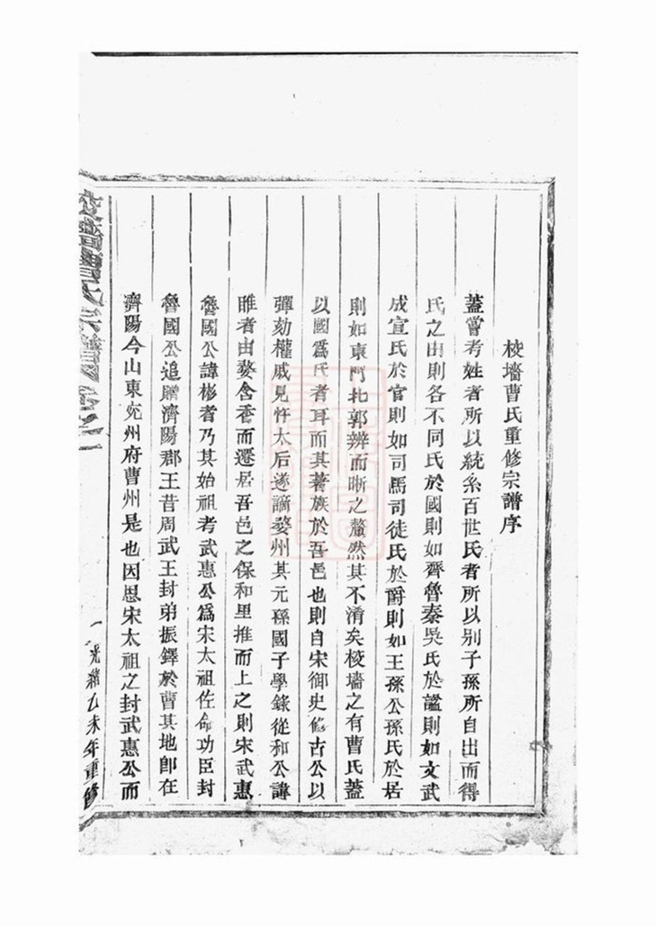 棱墻曹氏重修宗譜序
蓋嘗考姓者所以統系百世氏者所以别子孫所自出而得
氏之由則各不同氏於國則如齊魯秦吳氏於謚則如文武
成宣氏於官則如司馬司徒氏於爵則如王孫公孫氏於居
則如東門北郭辨而晰之釐然其不淆矣棱墻之有曹氏蓋
以國爲氏者耳而其著族於吾邑也則自宋御史脩古公以
彈劾權戚見忤太后遂謫婺州其元孫國子學錄從和公諱
睢者由婺舍香而遷居吾邑之保和里推而上之則宋武惠
魯國公諱彬者乃其始祖考武惠公爲宋太祖佐命功臣封
魯國公追贈濟陽郡王昔周武王封弟振鐸於曹其地卽在
濟陽今山東兖州府曹州是也因思宋太祖之封武惠公而
棱墻曹氏宗譜卷之一
一
光緒乙未年重修